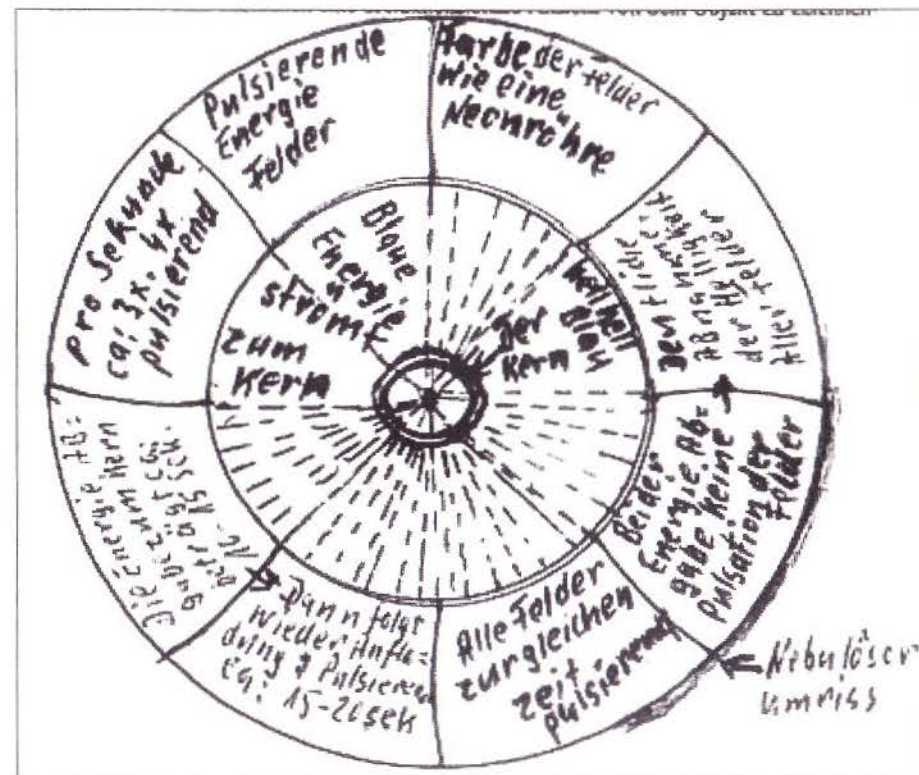 Pulsierende
Energie
Felder
Farbe der Felder
Wie eine
Neonröhre
Deutliche
Abnahme
der Helligkeit
Aller Felder
Bei der
Energie Ab=
gabe Keine
Pulsation der
Felder
Nebulöser
Umriss
Alle Felder
zur gleichen
Zeit
pulsierend
Dann folgt
wieder Aufla=
dung & Pulsieren
ca: 15-20 sek
Die Energie Ab=
gabe zum Kern
beträgt ca:
10-15 sek.
Pro Sekunde
ca: 3x. 4x
pulsierend
Blaue
Energie
strömt
zum
Kern
Der
Kern
Hell
Blau